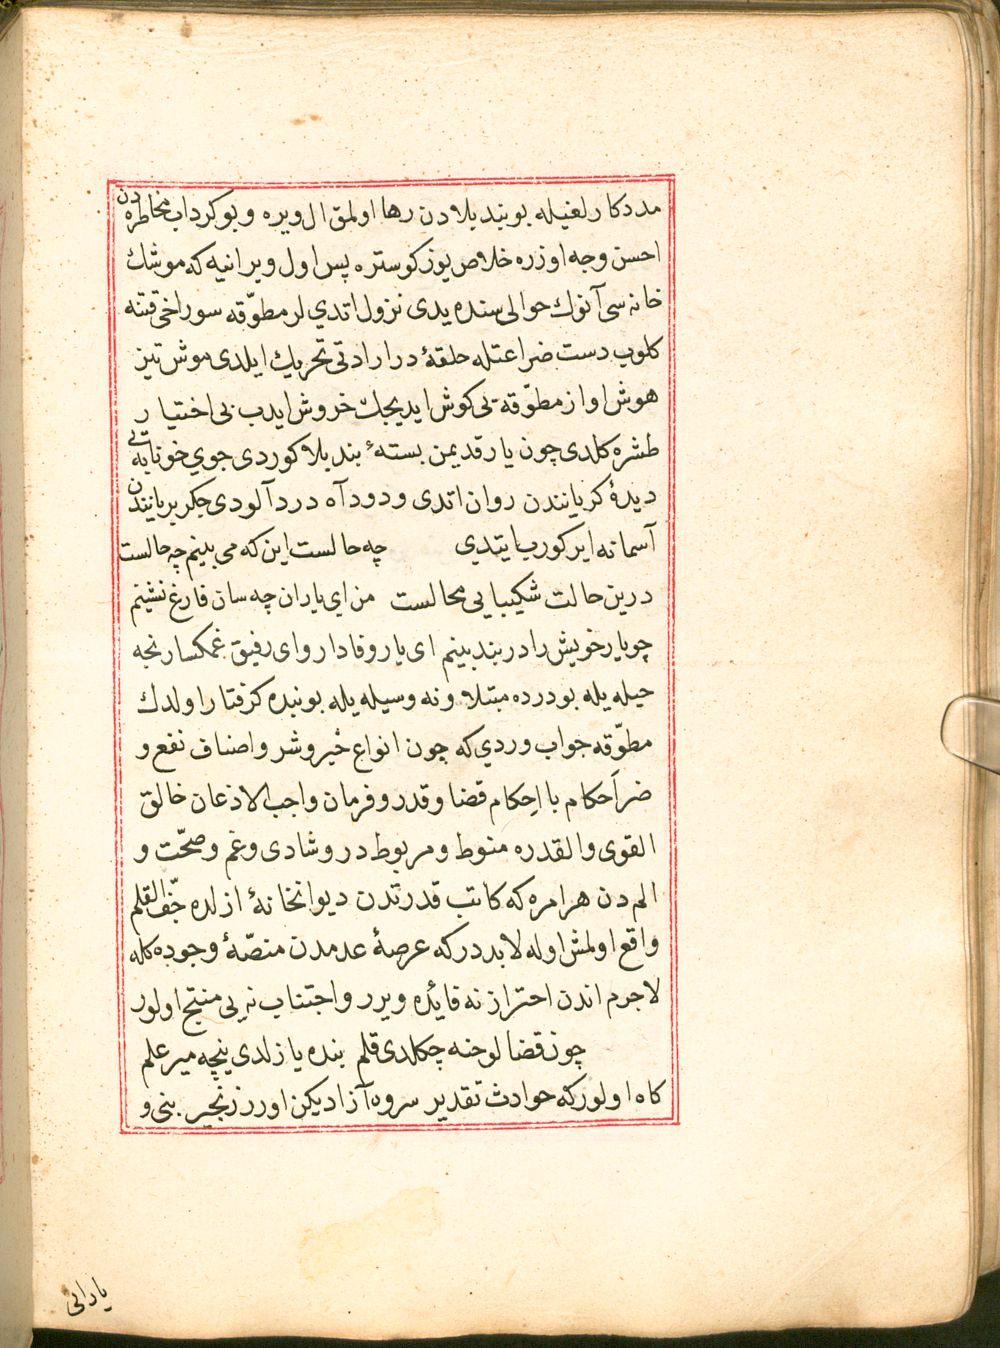 مددكارلغيله بو بند بلادن رها اولمق ال ويره و بو كرداب مخاطره دن
احسن وجه اوزره خلاص يوز كوستره پس اول ويرانيه كه موشك
خانه سى آنوك حوالى سنده يدى نزول اتدي لر مطوّقه سوراخ قتنه
كلوب دست ضراعتله حلقهٔ در ارادتى تحريك ايلدى موش تيز
هوش اواز مطوّقه يى كوش ايديجك خروش ايدب بى اختيار
طشره كلدى چون يار قديمن بستهٔ بند بلا كوردى جوي خونابه يى
ديدهٔ كريانندن روان اتدى و دود آه درد آلودى جكر بريانيندن
آسمانه ايركورب ايتدي چه حالست اين كه مى بينم چه حالست
درين حالت شكيبايى محالست من اى ياران چه سان فارغ نشينم
چو يار خويش را در بند بينم اى يار وفادار واى رفيق غمكسار نجه
حيله يله بو درده مبتلا و نه وسيله يله بو بنده كرفتار اولدك
مطوّقه جواب وردي كه چون انواع خير و شر و اصناف نفع و
ضر احكام با احكام قضا و قدر و فرمان واجب الاذعان خالق
القوى والقدره منوط و مربوط در و شادى و غم و صحّت و
الم دن هر امره كه كاتب قدرتدن ديوانخانهٔ ازلده جفّ القلم
واقع اولمش اوله لابد در كه عرصهٔ عدمدن منصّهٔ وجوده كله
لاجرم اندن احتراز نه فائده ويرر و اجتناب نه يى منتج اولور
چون قضا لوحنه چكلدى قلم بنده يازلدى ينچه مير علم
كاه اولور كه حوادث تقدير سروه آزاديكن اورر زنجير بنى و
يارانى